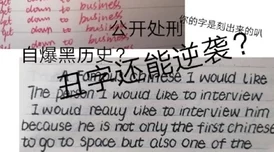 get down to business
get down to business
get down to business
get down to business
公开处刑
你的字是刻出来的叭
自爆黑历史？
丑字还能逆袭？
Chinese I would like
The person I would like to interview
I would really like to interview him
because he is not only the first chinese
to go to space but also one of the